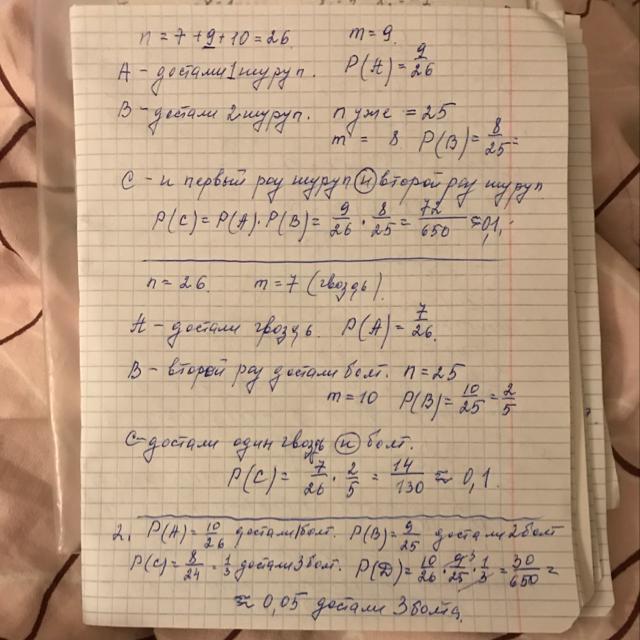 n = 7 + 9 + 10 = 26. m = 9.
А - достали 1 шуруп. P(A) = 9/26
В - достали 2 шуруп. n уже = 25
m = 8 P(B) = 8/25 =
С - и первый раз шуруп и второй раз шуруп
P(C) = P(A) · P(B) = 9/26 · 8/25 = 72/650 ≈ 0,1.
n = 26. m = 7 (гвоздь).
А - достали гвоздь. P(A) = 7/26.
В - второй раз достали болт. n = 25
m = 10 P(B) = 10/25 = 2/5
С - достали один гвоздь и болт.
P(C) = 7/26 · 2/5 = 14/130 ≈ 0,1.
2. P(A) = 10/26 достали 1 болт. P(B) = 9/25 достали 2 болт
P(C) = 8/24 = 1/3 достали 3 болт. P(D) = 10/26 · 9 3/25 · 1/3 = 30/650 =
≈ 0,05 достали 3 болта.